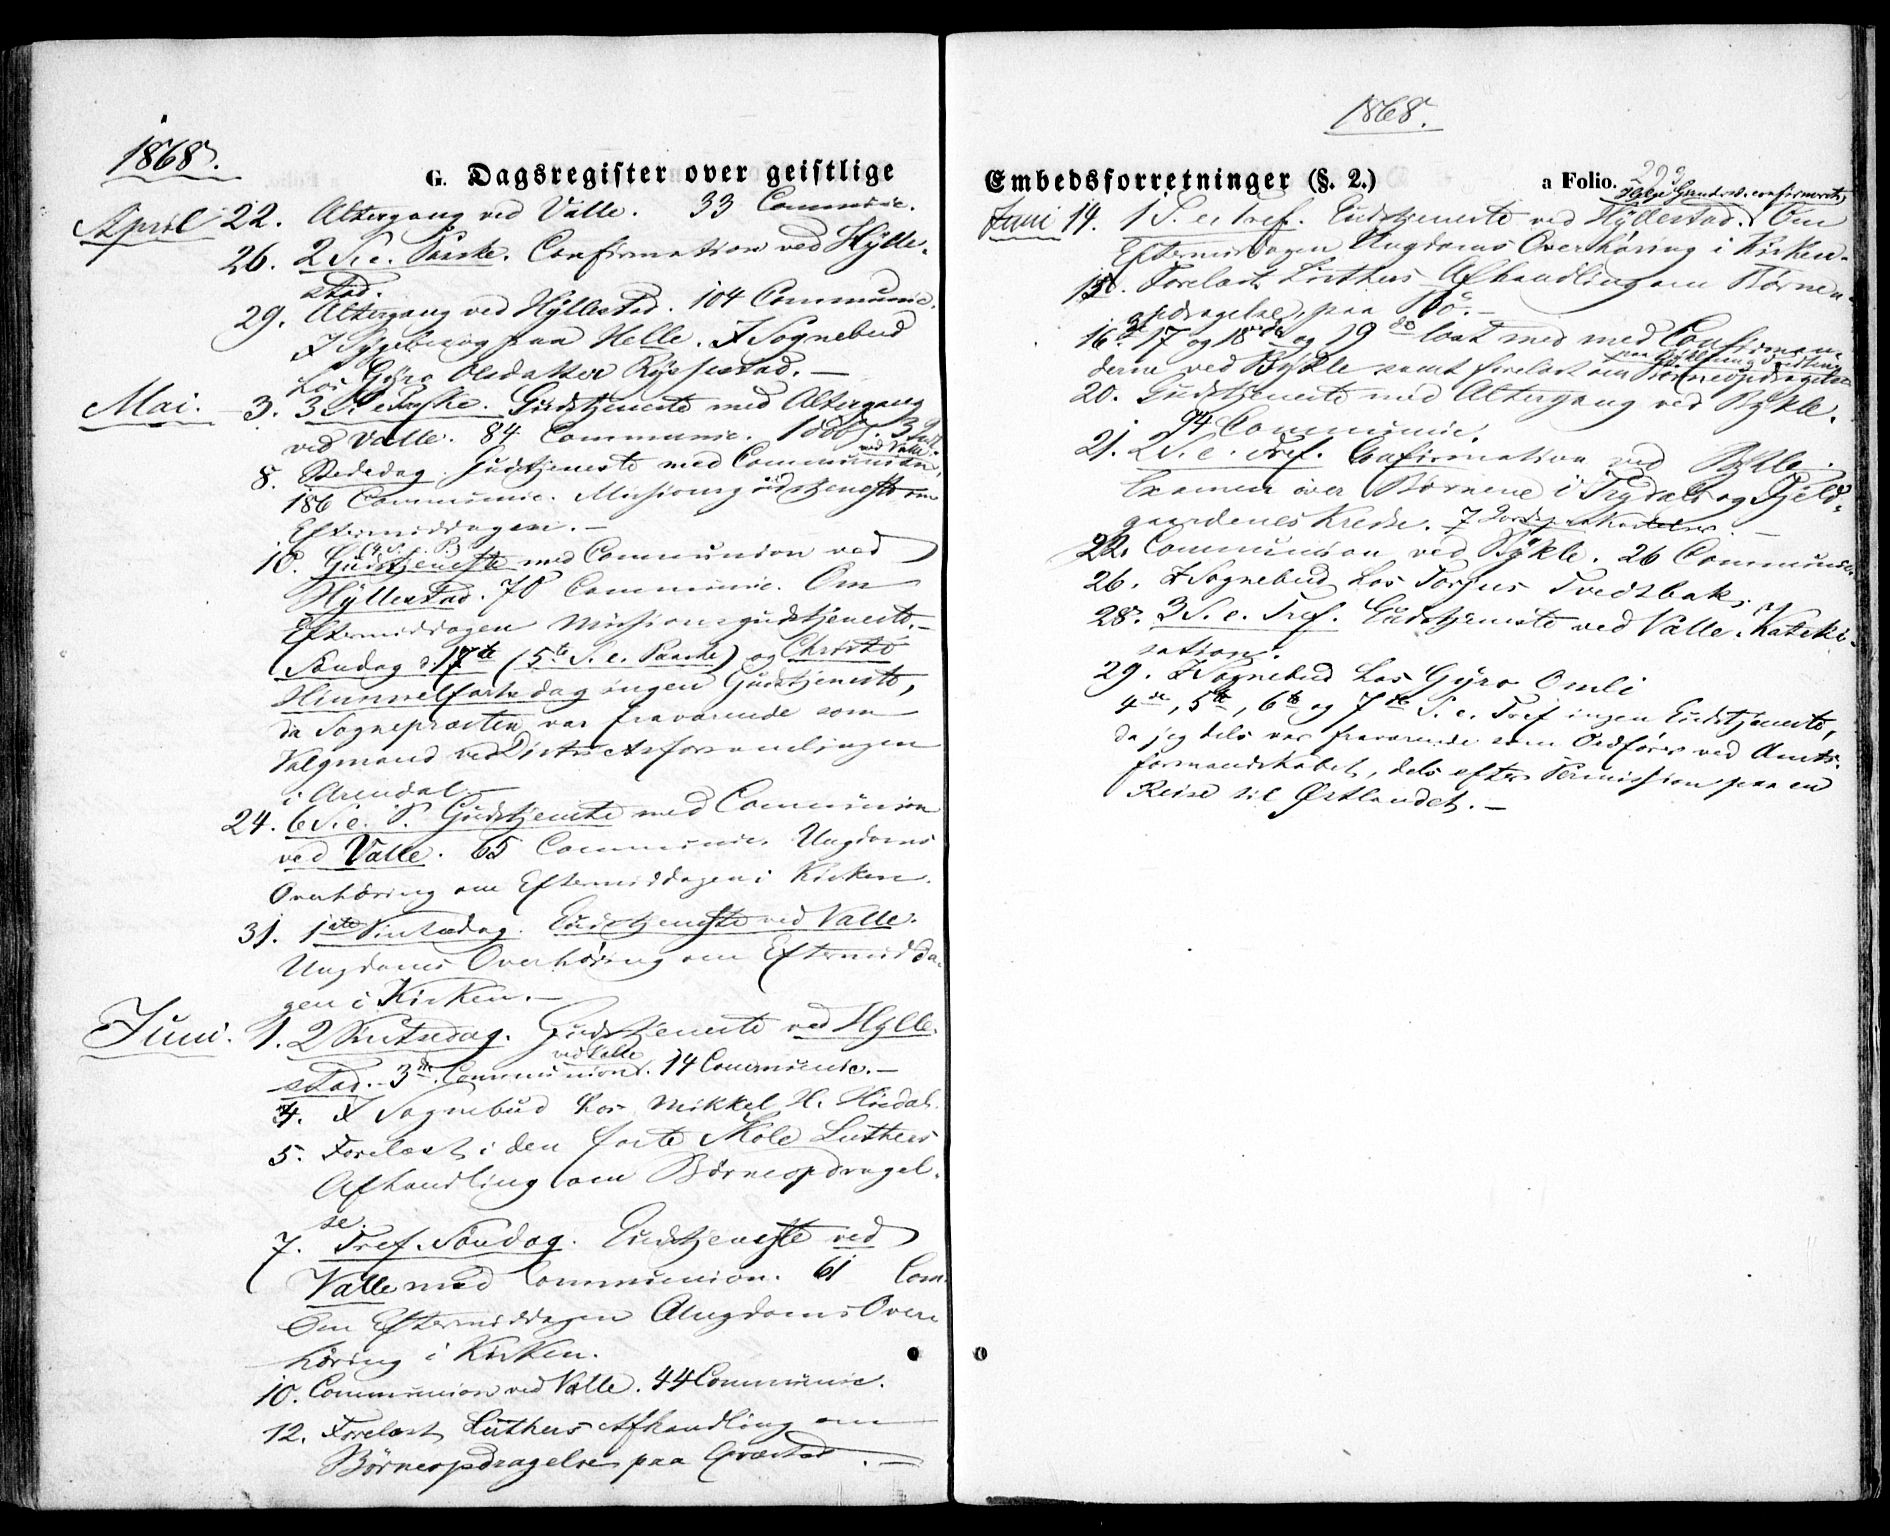 1868.
G. Dagsregister over geistlige
April 22. Altergang ved Valle. 33 Communic.
26. 2 S. e. Paaske. Confirmation ved Hylle-
stad.
29. Altergang ved Hyllestad. 104 Communic.
I Sygebesøg paa Helle. I Sognebud
hos Gyro Olsdatter Rysstad.—
Mai. 3. 3 S. e. Paaske. Gudstjeneste med Altergang
ved Valle. 84 Communic.
8. Bededag. Gudstjeneste med Communion
ved Valle.
186 Communic. Missionsgudstjeneste om
Eftermiddagen.—
(4 S. e. P.)
10. Gudstjeneste med Communion ved
Hyllestad. 70 Communic. Om
Eftermiddagen Missionsgudstjeneste.—
Søndag d. 17de (5te S. e. Paaske) og Christi
Himmelfartsdag ingen Gudstjeneste,
da Sognepræsten var fraværende som
Valgmand ved Districtsforsamlingen
i Arendal.—
24. 6 S. e. P. Gudstjeneste med Communion
ved Valle. 65 Communic. Ungdoms
Overhøring om Eftermiddagen i Kirken.
31. 1ste Pintsedag. Gudstjeneste ved Valle.
Ungdoms Overhøring om Eftermidda-
gen i Kirken.—
Juni. 1. 2 Pintsedag. Gudstjeneste ved Hylle-
ved Valle
stad.— 3die. Communion. 14 Communic.—
4. I Sognebud hos Mikkel H.
5. Forelæst i den faste Skole Luthers
Afhandling om Børneopdragel-
se.
7. Tref. Søndag. Gudstjeneste ved
Valle med Communion. 61 Com.
Om Eftermiddagen Ungdoms Over-
høring i Kirken.
10. Communion ved Valle. 44 Communic.
12. Forelæst Luthers Afhandling om
Børneopdragelse paa .—
1868.
Embedsforretninger (§. 2.) a Folio. 292
confirmeret
Juni 14. 1 S. e. Tref. Gudstjeneste ved Hyllestad. Om
Eftermiddagen Ungdoms Overhøring i Kirken.
15. Forelæst Luthers Afhandling om Børne-
opdragelse, paa Bø.—
16de 17 og 18de og 19de læst med med Confirman-
derne ved Bykle samt forelæst om Børneopdragelse
20. Gudstjeneste med Altergang ved Bykle.
94 Communic.
21. 2 S. e. Tref. Confirmation ved Bykle.
Examen over Børnene i Trydals og Fjeld-
gaardenes Kredse. 7
22. Communion ved Bykle. 26 Communic.
26. I Sognebud hos Torjus Tvedtbak
28. 3 S. e. Tref. Gudstjeneste ved Valle. Kateki-
sation.
29. I Sognebud hos Gyro Omli
4de, 5te, 6te og 7de S. e. Tref ingen Gudstjeneste,
da jeg dels var fraværende som Ordfører ved Amts-
formandskabet, dels efter Permission paa en
Reise til Østlandet.—